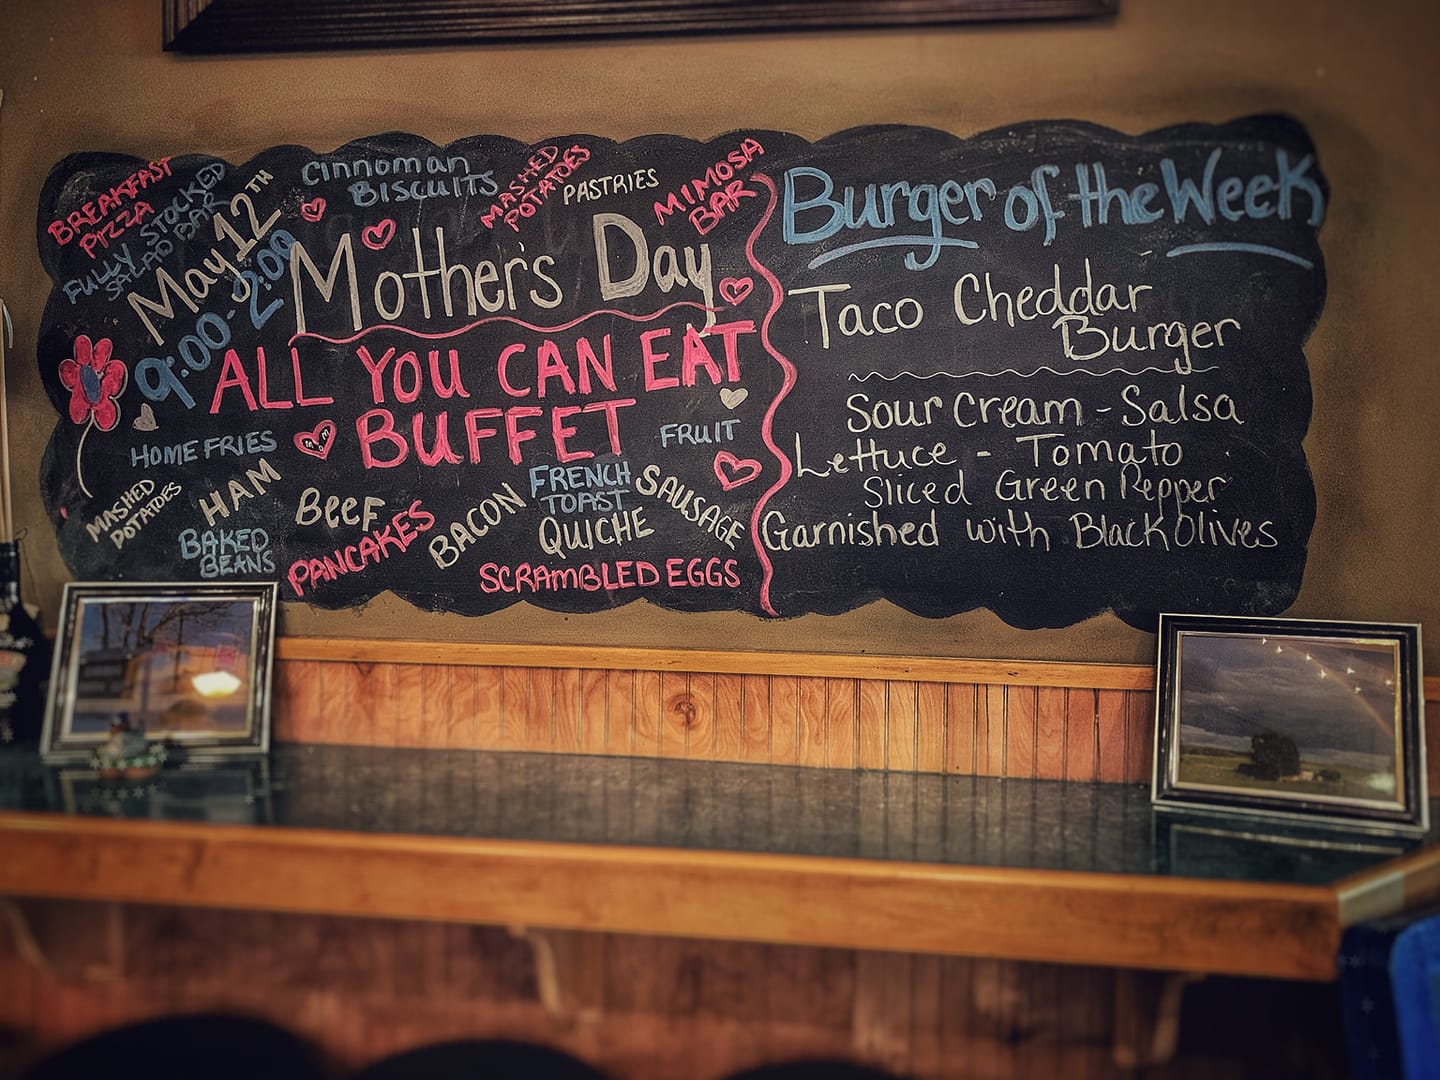 BREAKFAST
PIZZA
FULLY STOCKED
SALAD BAR
May 12TH
9:00-2:00
Cinnoman
BISCUITS
MASHED
POTATOES
PASTRIES
MIMOSA
BAR
Mother's Day
ALL YOU CAN EAT
BUFFET
HOME FRIES
MOM
FRUIT
MASHED
POTATOES
HAM
BAKED
BEANS
BEEF
PANCAKES
BACON
FRENCH
TOAST
QUICHE
SAUSAGE
SCRAMBLED EGGS
Burger of the Week
Taco Cheddar
Burger
Sour Cream - Salsa
Lettuce - Tomato
Sliced Green Pepper
Garnished with Black Olives